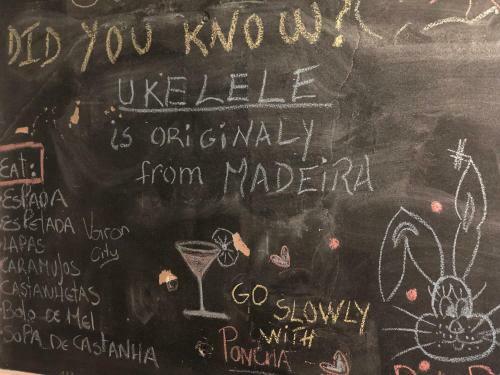 DID YOU KNOW?
UKELELE
is ORIGINALY
from MADEIRA
EAT:
ESPADA
ESPETADA
LAPAS
CARAMUJOS
CASTANHETAS
BOLO DE MEL
SOPA DE CASTANHA
City
GO SLOWLY
WITH
PONCHA